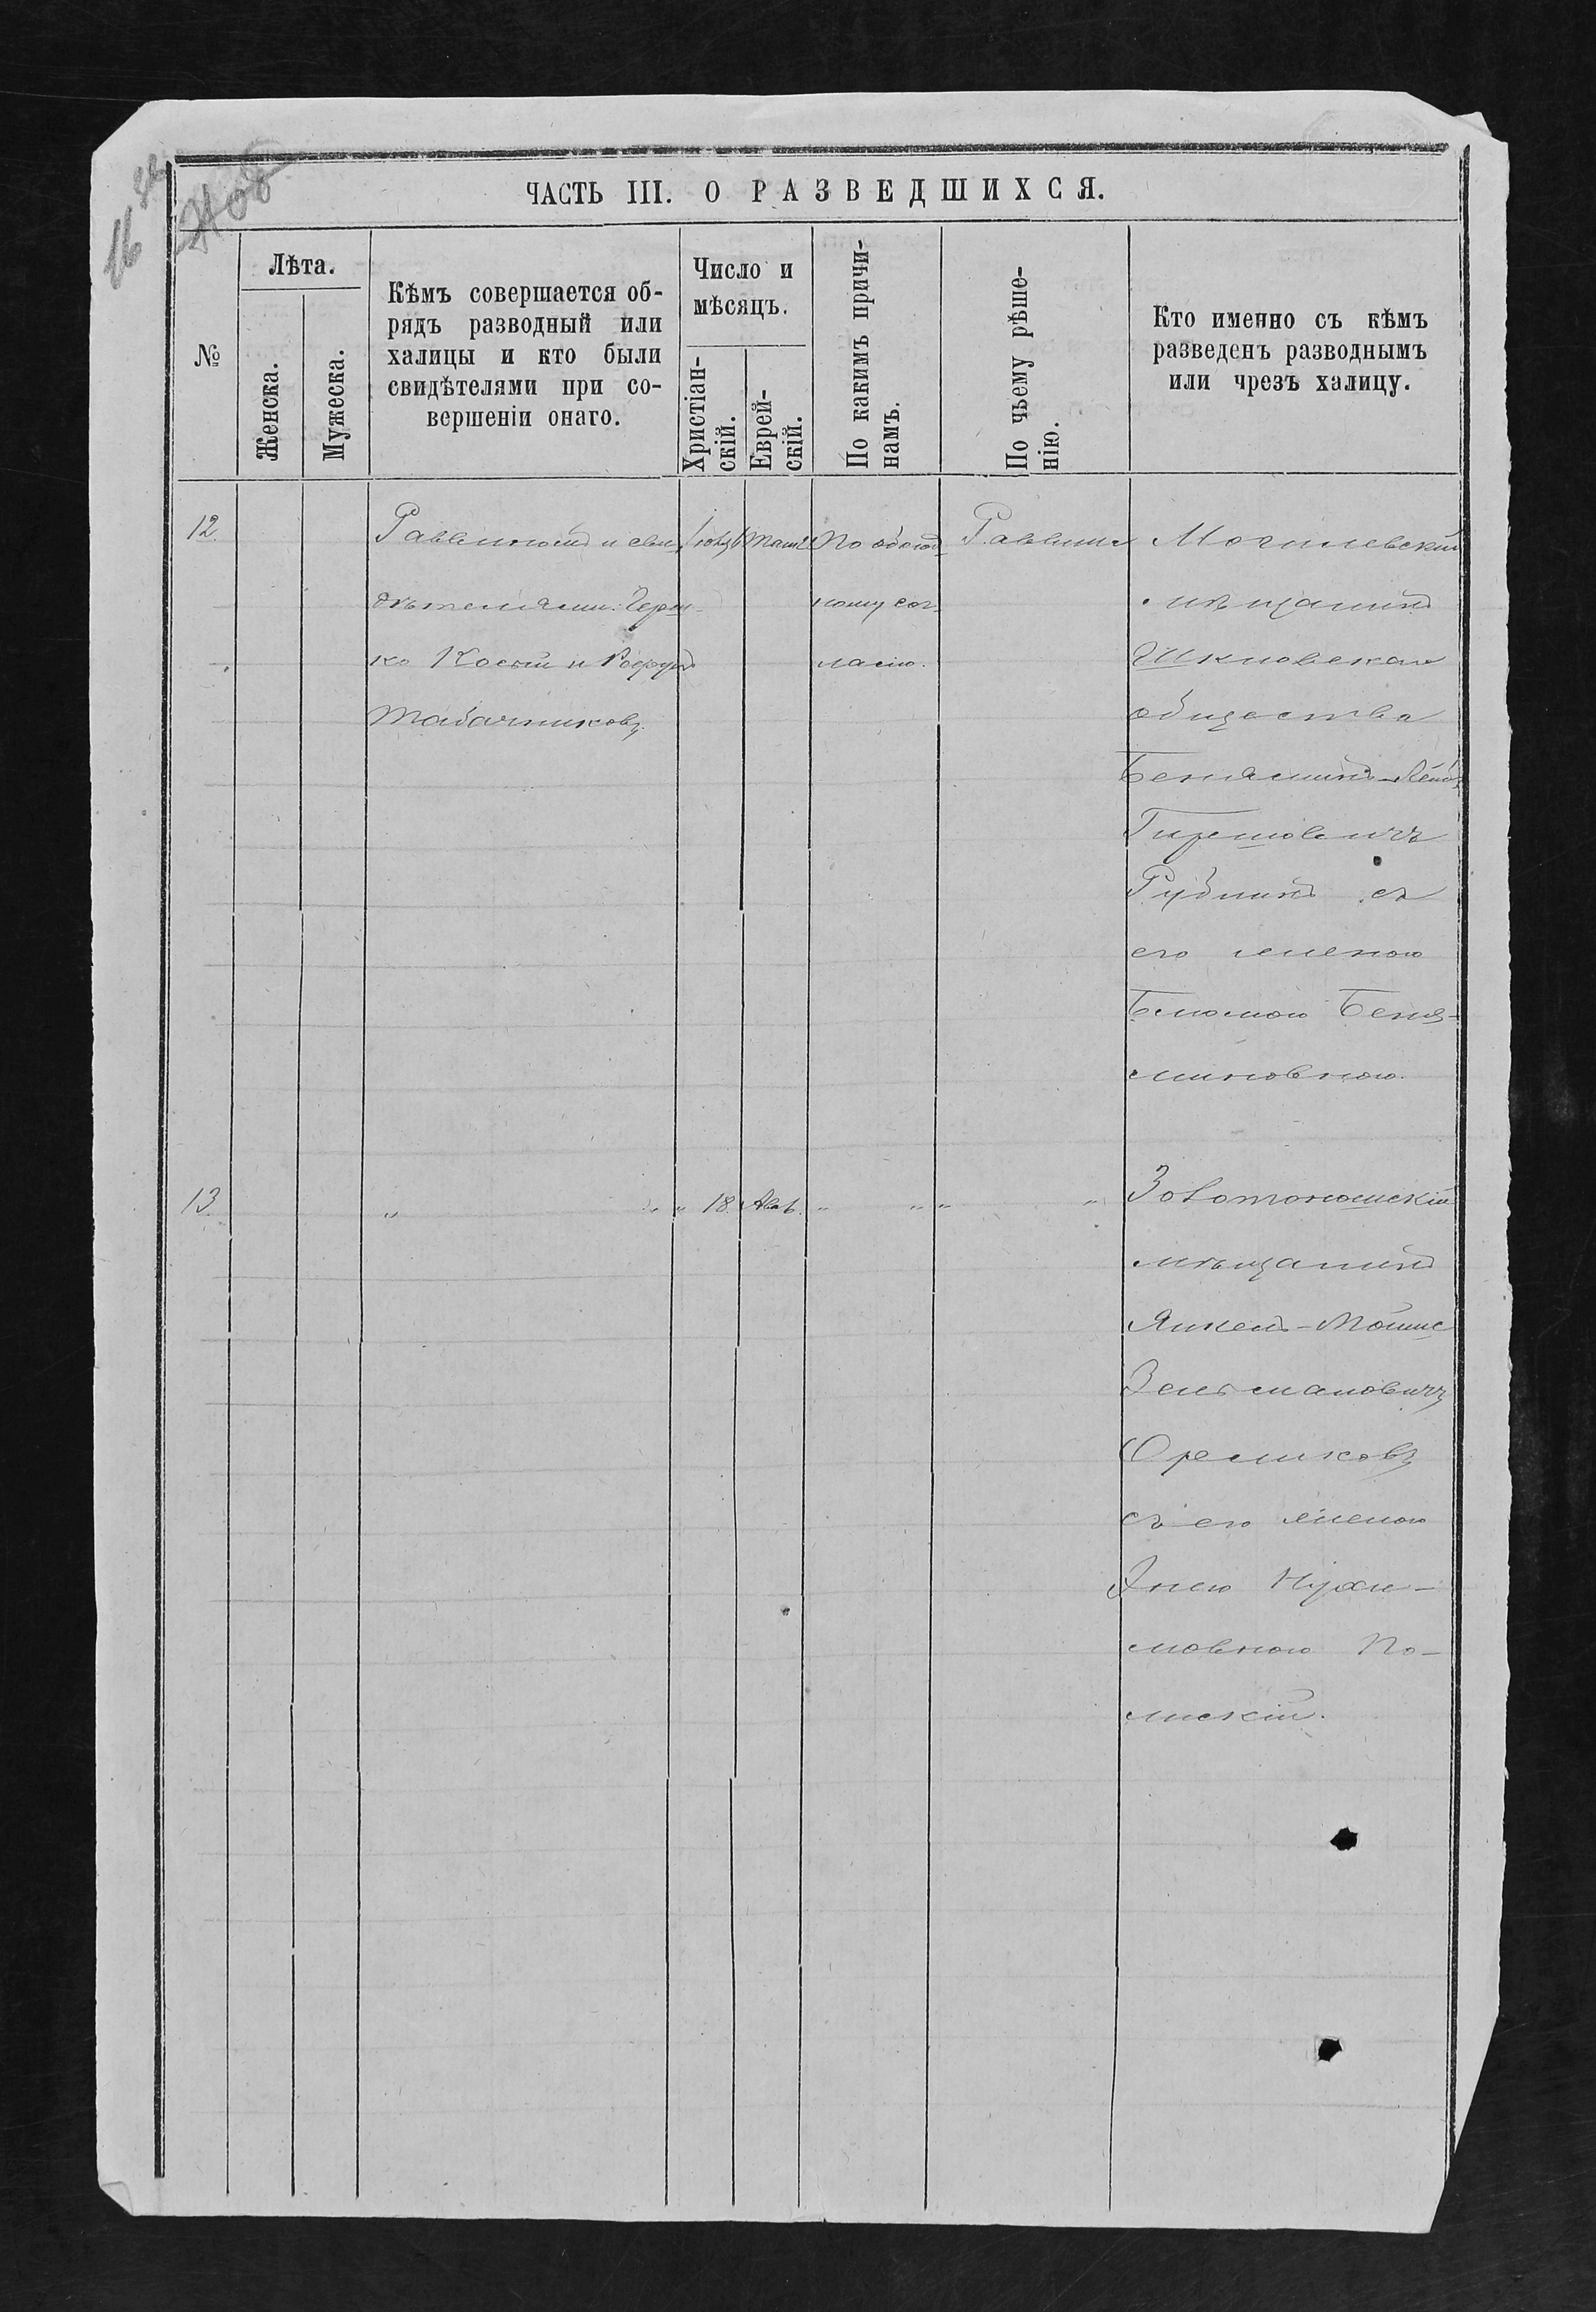 ЧАСТЬ III. О РАЗВЕДШИХСЯ.
№
Лѣта.
Женска.
Мужеска.
Кѣмъ совершается об-
рядъ разводный или
халицы и кто были
свидѣтелями при со-
вершеніи онаго.
Число и
мѣсяцъ.
Христіан-
скій.
Еврей-
скій.
По какимъ причи-
намъ.
По чьему рѣше-
нію.
Кто именно съ кѣмъ
разведенъ разводнымъ
или чрезъ халицу.
12
Раввиномъ и сви-
дѣтелями:
ко Косой и
Табачниковъ.
По обоюд-
ному сог-
ласію.
Раввина
Могилевскій
мѣщанинъ
Шкловскаго
общества
Беньяминъ-
Гиршовичъ
Рудминъ съ
его женою
Блюмою Бенья-
миновною.
13
„ „ „ 18 Ава 6. „ „ „ „
Золотоношскій
мѣщанинъ
Янкель-Мойше
Зельмановичъ
Орешковъ
съ его женою
Энею Нухи-
мовною По-
лискій.